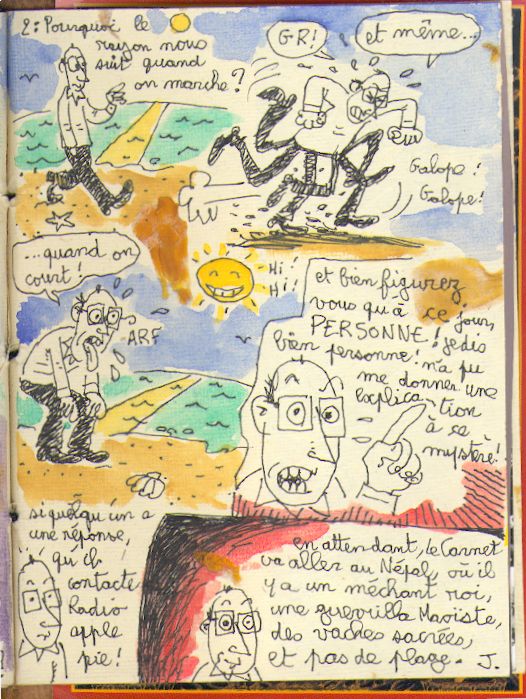 2: Pourquoi le
rayon nous
suit quand
on marche?
GR!
et même...
Galope!
Galope!
...quand on
court!
Hi!
Hi!
ARF
et bien figurez
vous qu'à ce jour,
PERSONNE! je dis
bien personne! n'a pu
me donner une
explication
à ce
mystère!
si quelqu'un a
une réponse,
qu'il
contacte
Radio
apple
pie!
en attendant, le Carnet
va aller au Népal, où il
y a un méchant roi,
une guerrilla Maoiste,
des vaches sacrées,
et pas de plage. J.